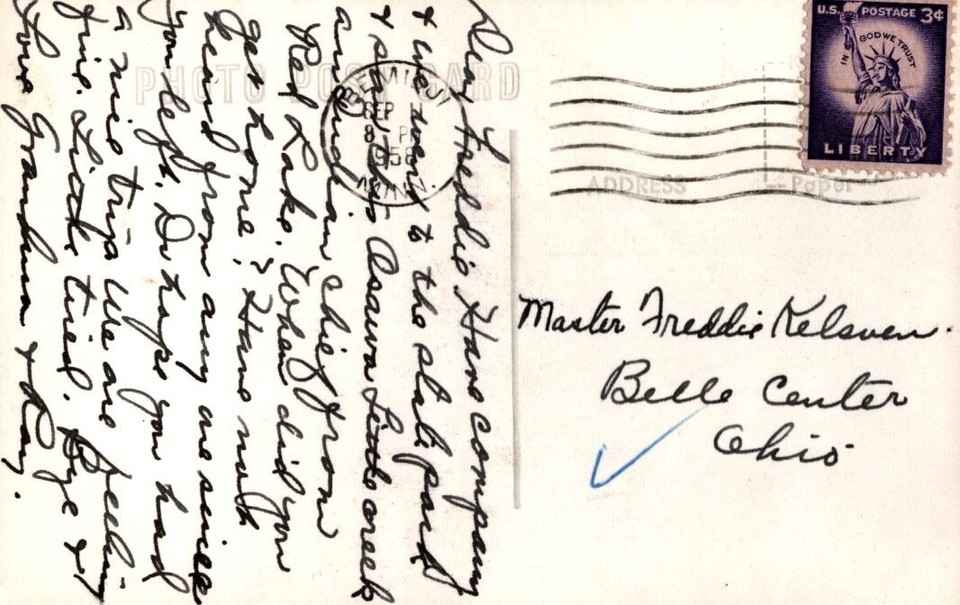 Dear Freddie, Have company
& we went to the state park
& to Assawa Little creek
an indian chief from
Red Lake. When did you
get home? Have not
heard from any one since
you left. Do hope you had
a nice trip. We are feeling
fine. Little tired. Bye &
Love Grandma & Ray.
PHOTO POST CARD
BEMIDJI
SEP
8 PM
1958
MINN
U.S. POSTAGE 3¢
IN GOD WE TRUST
LIBERTY
ADDRESS
Paper
Master Freddie Kelsven.
Belle Center
Ohio